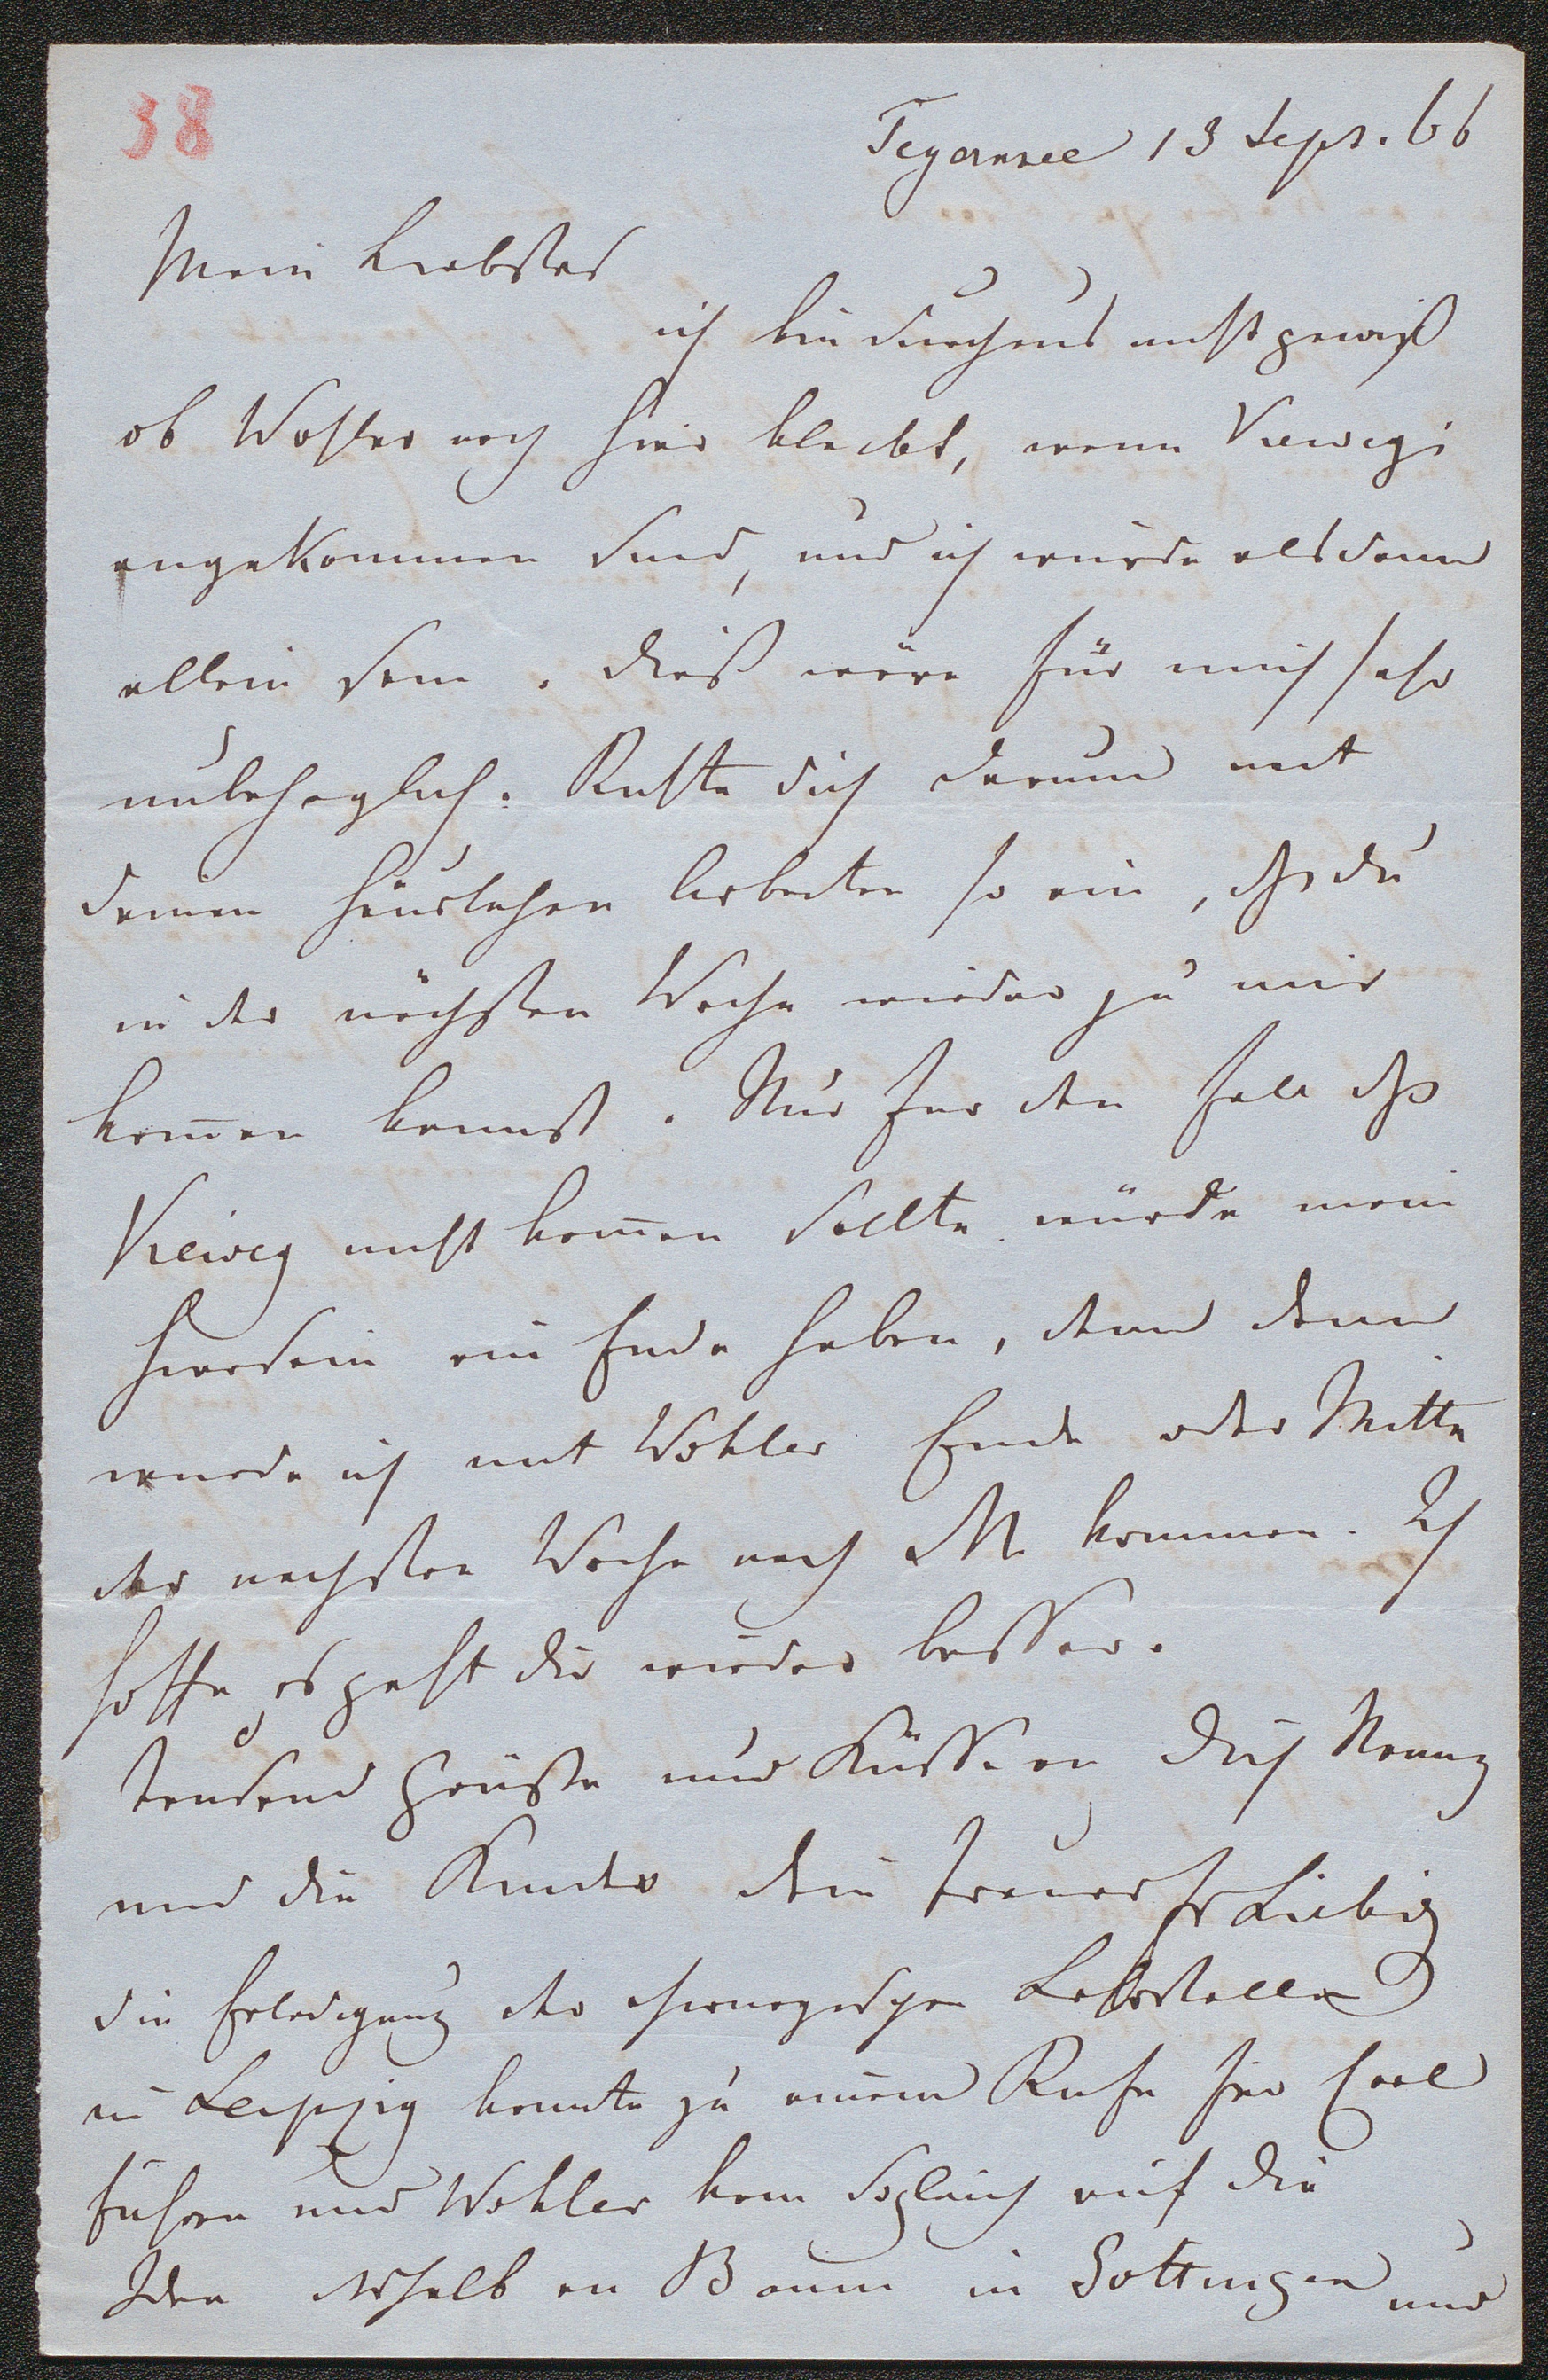 38
Tegernsee 13 Sept. 66
Mein Liebstes
ich bin durchaus nicht gewiß
ob Wohler noch hier bleibt, wenn Viewegs
angekommen sind, und ich würde alsdann
allein sein. Dieß wäre für mich sehr
unbehaglich. Richte dich darum mit
deinen häuslichen Arbeiten so ein, dß du
in der nächsten Woche wieder zu mir
kom̄en kannst. Nur für den Fall dß
Vieweg nicht kom̄en sollte würde mein
Hiersein ein Ende haben, denn dann
wurde ich mit Wohler Ende oder Mitte
der nachsten Woche nach M. kommen. Ich
hoffe es geht dir wieder besser.
Tausend Grüße und Küsse an dich Nanny
und die Kinder dein treuer Jr Liebig
die Erledigung der chirurgischen Lehrstelle
in Leipzig konnte zu einem Rufe für Carl
führen und Wohler kam sogleich auf die
Idee deshalb an Baum in Gottingen und